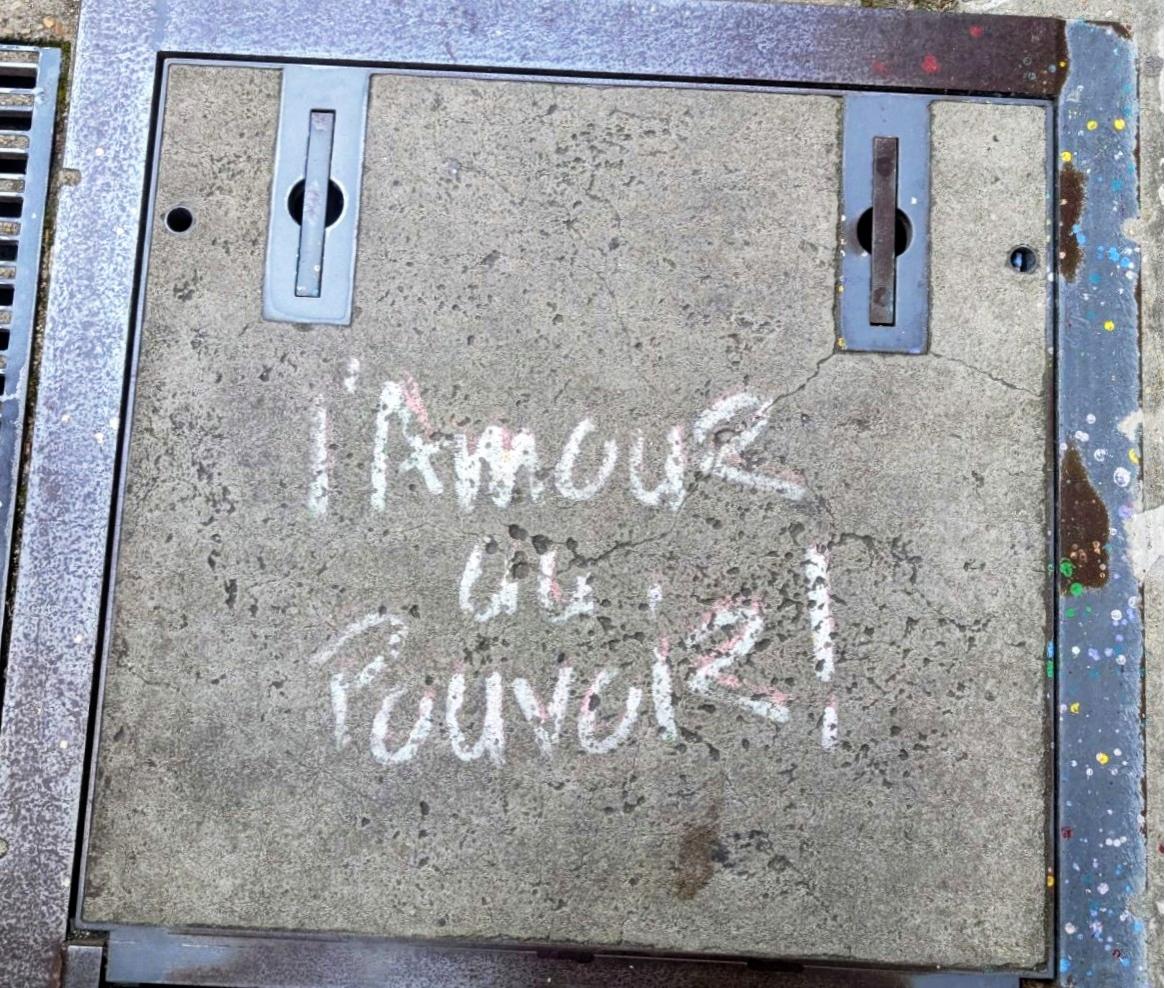 l'Amour
au
Pouvoir!